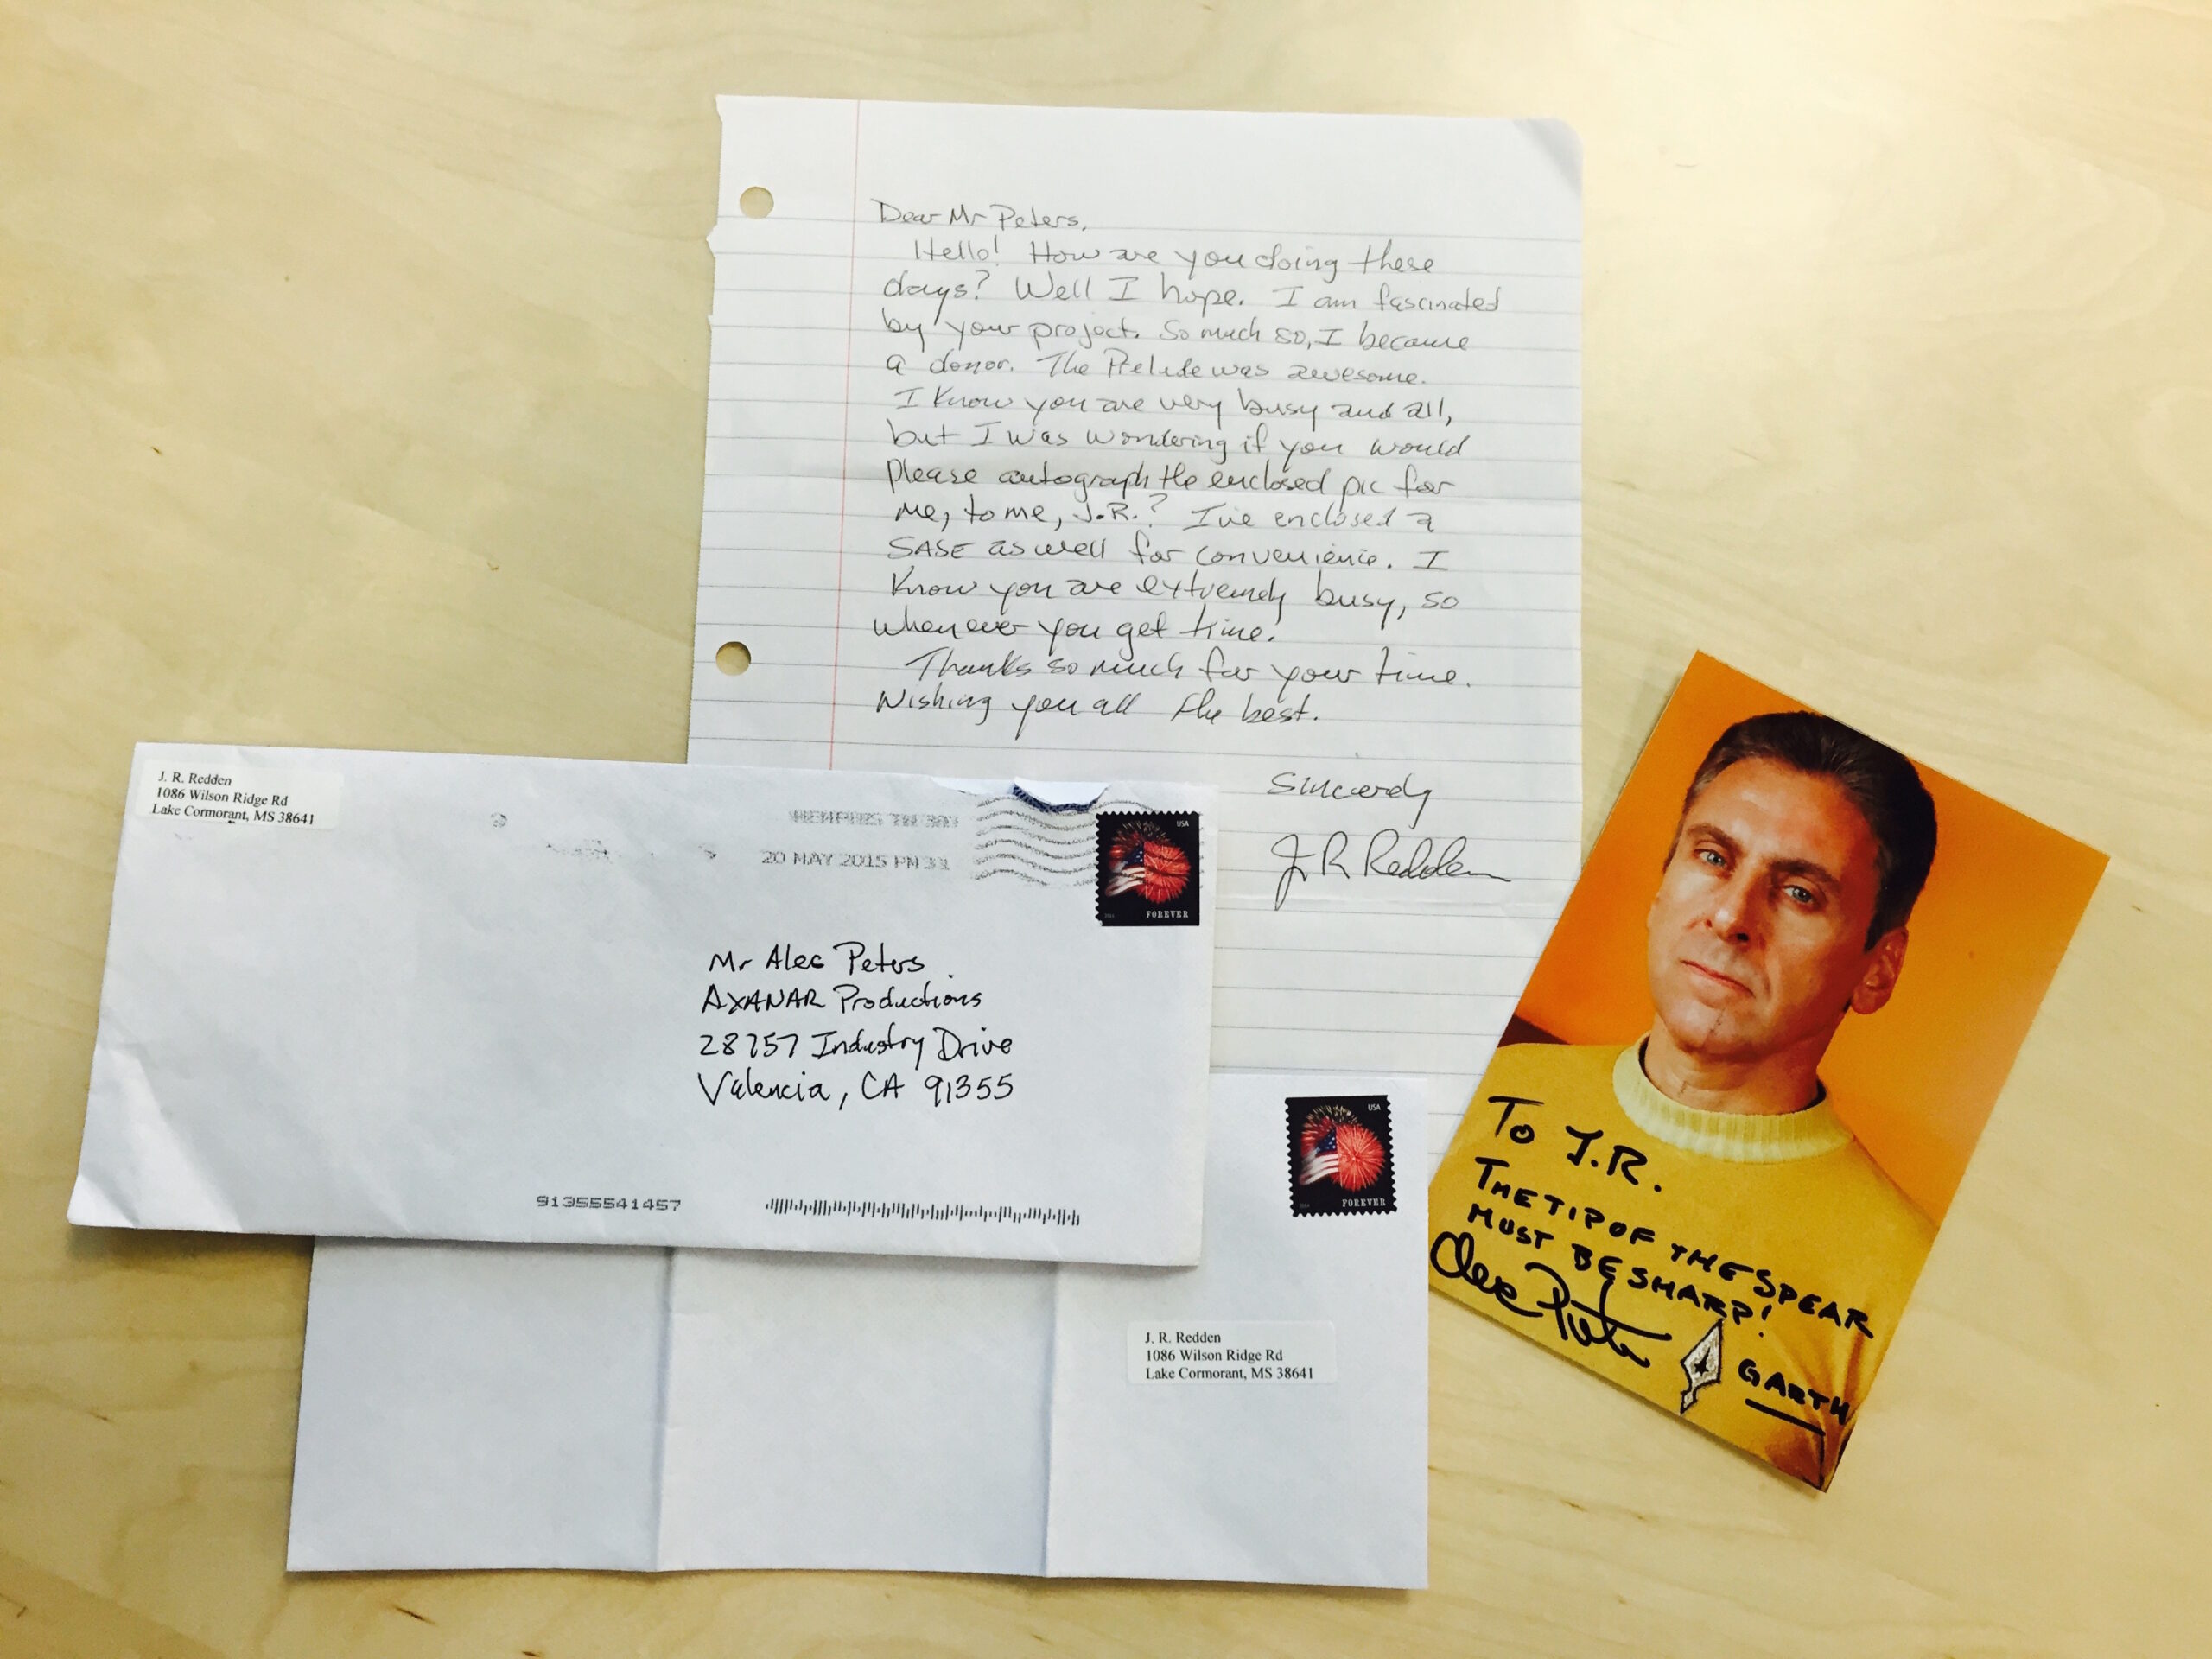 Dear Mr Peters,
Hello! How are you doing these
days? Well I hope. I am fascinated
by your project. So much so, I became
a donor. The Prelude was awesome.
I know you are very busy and all,
but I was wondering if you would
please autograph the enclosed pic for
me, to me, J.R.? I've enclosed a
SASE as well for convenience. I
know you are extremely busy, so
whenever you get time.
Thanks so much for your time.
Wishing you all the best.
Sincerely
J R Redden
J. R. Redden
1086 Wilson Ridge Rd
Lake Cormorant, MS 38641
MEMPHIS TN
20 MAY 2015 PM
USA
FOREVER
Mr Alec Peters
AXANAR Productions
28757 Industry Drive
Valencia, CA 91355
91355541457
USA
FOREVER
J. R. Redden
1086 Wilson Ridge Rd
Lake Cormorant, MS 38641
TO J.R.
THE TIP OF THE SPEAR
MUST BE SHARP!
Alec Peters
GARTH